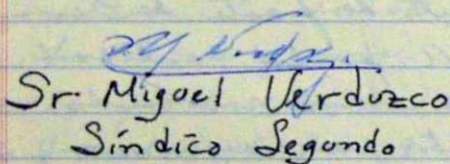 Sr. Miguel Verduzco
Síndico Segundo